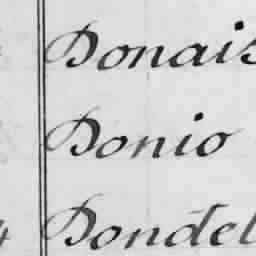 Donais
Donio
4 Dondel